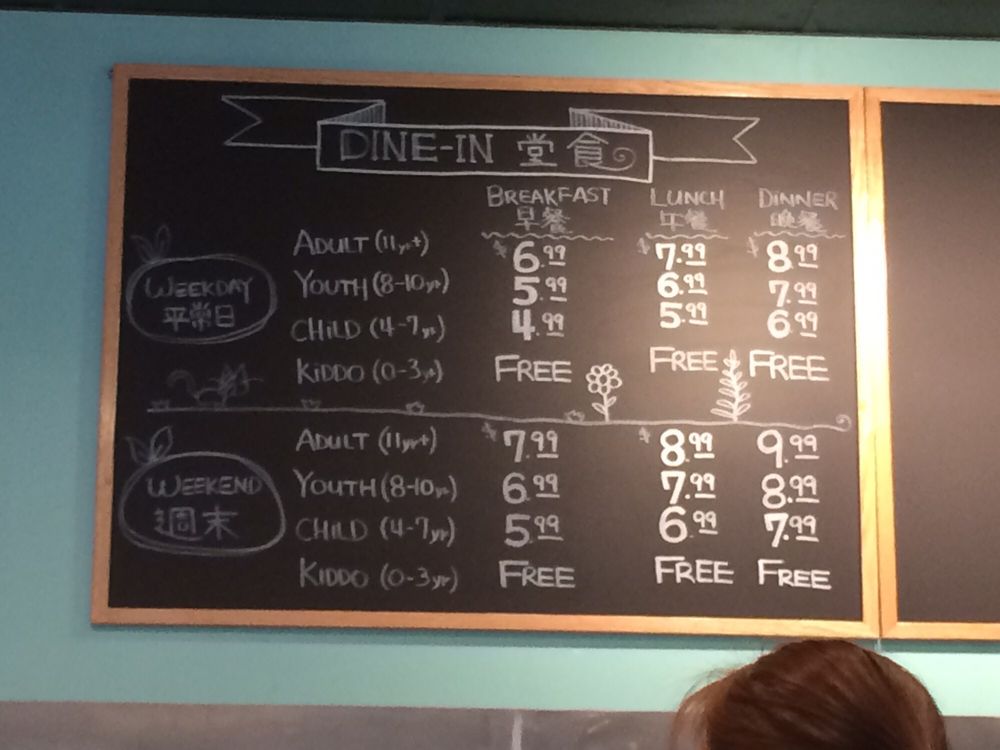 DINE-IN 堂食
BREAKFAST LUNCH DINNER
早餐 午餐 晚餐
WEEKDAY
平常日
ADULT (11yr+) $6.99 $7.99 $8.99
YOUTH (8-10yr) 5.99 6.99 7.99
CHILD (4-7yr) 4.99 5.99 6.99
KIDDO (0-3yr) FREE FREE FREE
WEEKEND
週末
ADULT (11yr+) $7.99 $8.99 9.99
YOUTH (8-10yr) 6.99 7.99 8.99
CHILD (4-7yr) 5.99 6.99 7.99
KIDDO (0-3yr) FREE FREE FREE